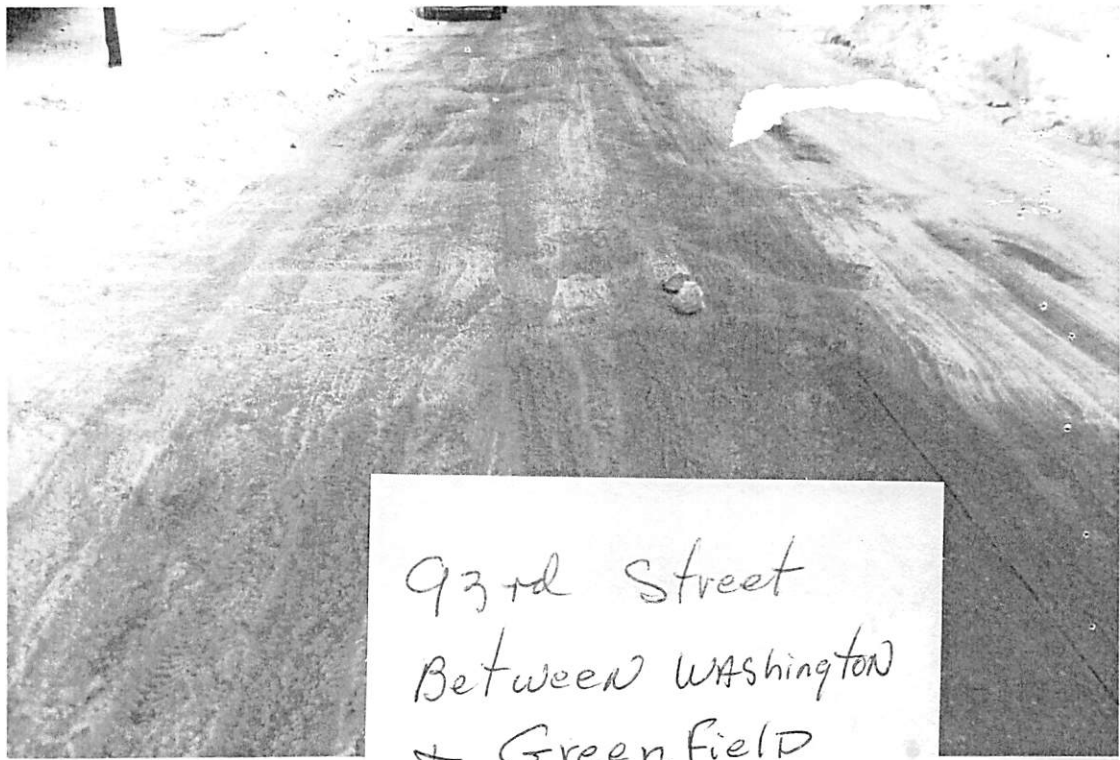 93rd Street
Between WAshington
& GreenfielD